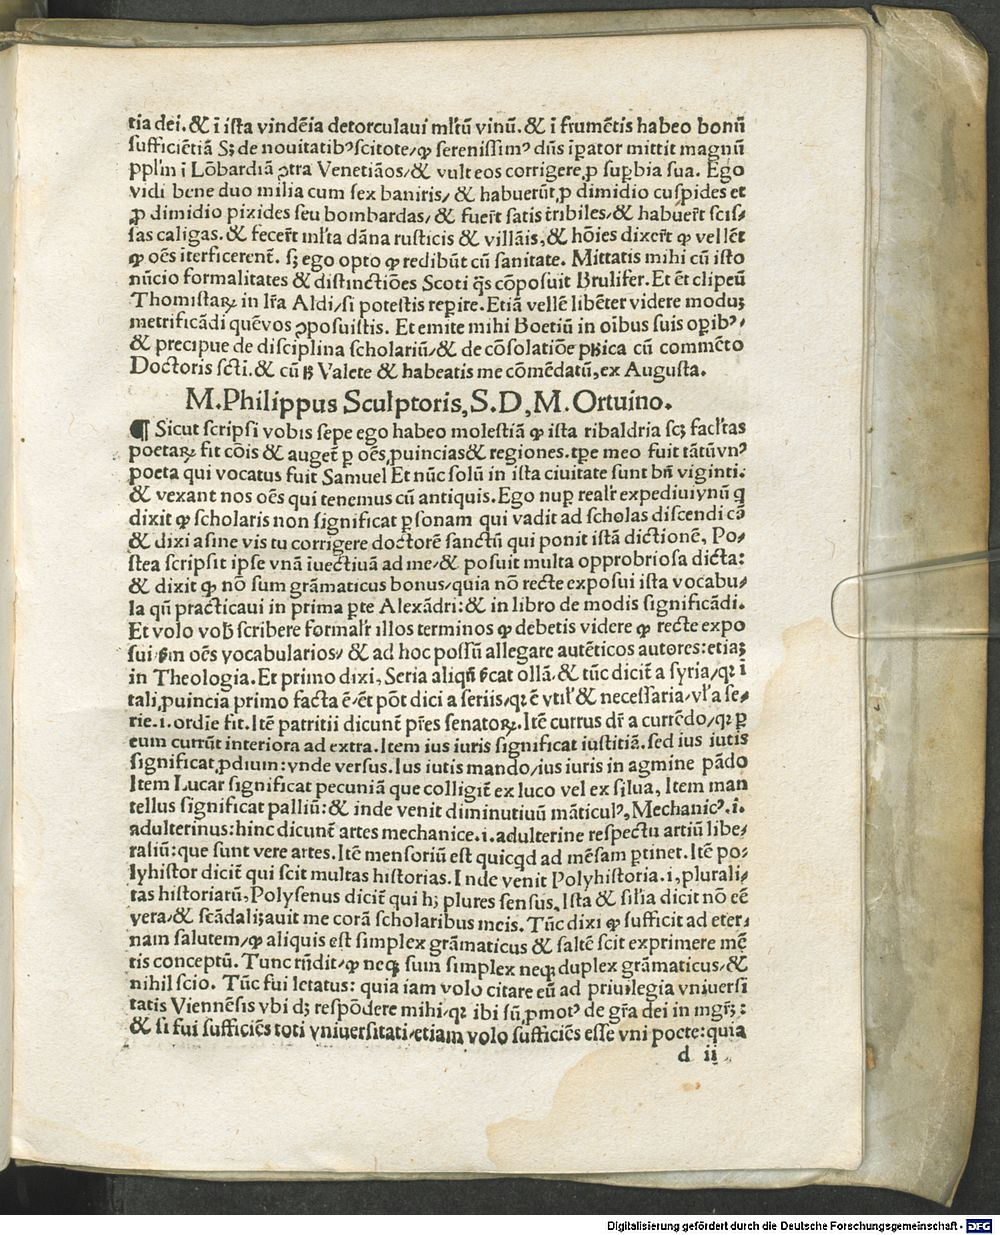 tia dei. & ī ista vindēia detorculaui mltū vinū. & ī frumētis habeo bonū
sufficiētiā Sꝫ de nouitatibꝰ scitote/ ꝙ serenissimꝰ dn̄s īpator mittit magnū
pplm ī Lōbardiā ꝯtra Venetiāos/ & vult eos corrigere ꝓ suꝑbia sua. Ego
vidi bene duo milia cum sex baniris/ & habuerūt ꝓ dimidio cuspides et
ꝓ dimidio pixides seu bombardas/ & fuert̄ satis tribiles/ & habuert̄ scis⸗
sas caligas. & fecert̄ mlta dāna rusticis & villāis, & hōies dixert̄ ꝙ vellēt
ꝙ oēs iterficerent̄. sꝫ ego opto ꝙ redibūt cū sanitate. Mittatis mihi cū isto
nūcio formalitates & distinctiōes Scoti q̄s cōposuit Brulifer. Et ēt clipeū
Thomistaꝝ in lr̄a Aldi/ si potestis reꝑire. Etiā vellē libēter videre modūꝫ
metrificādi quē vos ꝯposuistis. Et emite mihi Boetiū in oībus suis oꝑibꝰ⸗
& precipue de disciplina scholariū/ & de cōsolatiōe phica cū commēto
Doctoris scti. & cū ħ Valete & habeatis me cōmēdatū, ex Augusta.
M. Philippus Sculptoris, S. D, M. Ortuino.
¶ Sicut scripsi vobis sepe ego habeo molestiā ꝙ ista ribaldria scꝫ facltas
poetaꝝ fit cōis & auget̄ ꝑ oēs ꝓuincias & regiones. tꝑe meo fuit tātū vnꝰ
poeta qui vocatus fuit Samuel Et nūc solū in ista ciuitate sunt bn̄ viginti.
& vexant nos oēs qui tenemus cū antiquis. Ego nuꝑ realr̄ expediui vnū q
dixit ꝙ scholaris non significat ꝑsonam qui vadit ad scholas discendi cā
& dixi asine vis tu corrigere doctorē sanctū qui ponit istā dictionē, Po⸗
stea scripsit ipse vnā īuectiuā ad me/ & posuit multa opprobriosa dicta:
& dixit ꝙ nō sum grāmaticus bonus/ quia nō recte exposui ista vocabu⸗
la qn̄ practicaui in prima ꝑte Alexādri: & in libro de modis significādi.
Et volo vob̄ scribere formalr̄ illos terminos ꝙ debetis videre ꝙ recte expo
sui ẜm oēs vocabularios/ & ad hoc possū allegare autēticos autores: etiaꝫ
in Theologia. Et primo dixi, Seria aliqn̄ ẜcat ollā. & tūc dicit̄ a syria/ qꝛ ī
tali ꝓuincia primo facta ē/ ēt pōt dici a seriis/ qꝛ ē vtil' & necessaria/ vl' a se⸗
rie. i. ordīe fit. Itē patritii dicunt̄ pr̄es senatoꝝ. Itē currus dr̄ a currēdo/ qꝛ ꝑ
eum currūt interiora ad extra. Item ius iuris significat iustitiā. sed ius iutis
significat ꝓdium: vnde versus. Ius iutis mando/ ius iuris in agmine pādo
Item Lucar significat pecuniā que colligit̄ ex luco vel ex silua, Item man
tellus significat palliū: & inde venit diminutiuū māticulꝰ, Mechanicꝰ. i.
adulterinus: hinc dicunt̄ artes mechanice. i. adulterine respectu artiū libe⸗
raliū: que sunt vere artes. Itē mensoriū est quicqd ad mēsam ꝑtinet. Itē po⸗
lyhistor dicit̄ qui scit multas historias. Inde venit Polyhistoria. i, plurali⸗
tas historiarū, Polysenus dicit̄ qui hꝫ plures sensus. Ista & silia dicit nō eē
vera/ & scādaliꝫauit me corā scholaribus meis. Tūc dixi ꝙ sufficit ad eter⸗
nam salutem/ ꝙ aliquis est simplex grāmaticus & saltē scit exprimere mē
tis conceptū. Tunc rn̄dit/ ꝙ neqꝫ sum simplex neqꝫ duplex grāmaticus/ &
nihil scio. Tūc fui letatus: quia iam volo citare eū ad priuilegia vniuersi
tatis Viennēsis vbi dꝫ respōdere mihi/ qꝛ ibi sū ꝓmotꝰ de gr̄a dei in mgr̄ꝫ:
& si fui sufficiēs toti vniuersitati/ etiam volo sufficiēs esse vni poete: quia
d ii
Digitalisierung gefördert durch die Deutsche Forschungsgemeinschaft - DFG